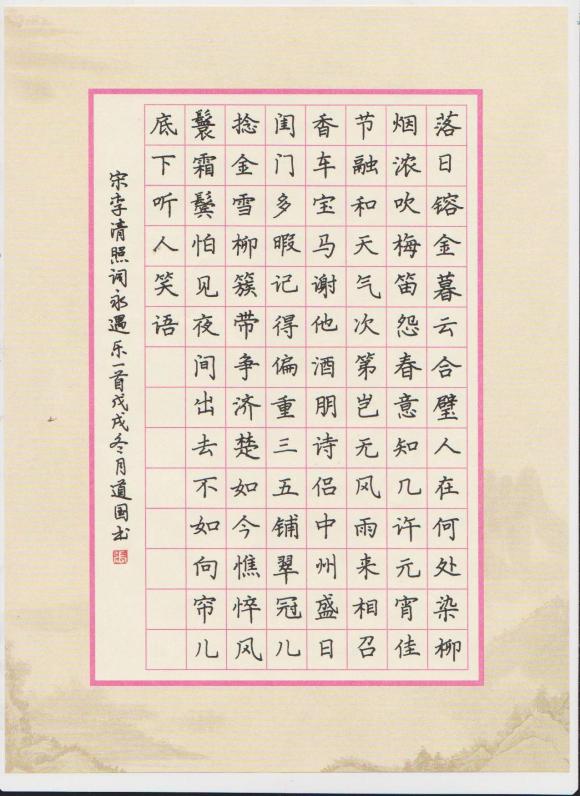 落日镕金暮云合璧人在何处染柳
烟浓吹梅笛怨春意知几许元宵佳
节融和天气次第岂无风雨来相召
香车宝马谢他酒朋诗侣中州盛日
闺门多暇记得偏重三五铺翠冠儿
捻金雪柳簇带争济楚如今憔悴风
鬟霜鬓怕见夜间出去不如向帘儿
底下听人笑语
宋李清照词永遇乐一首戊戌冬月道国书